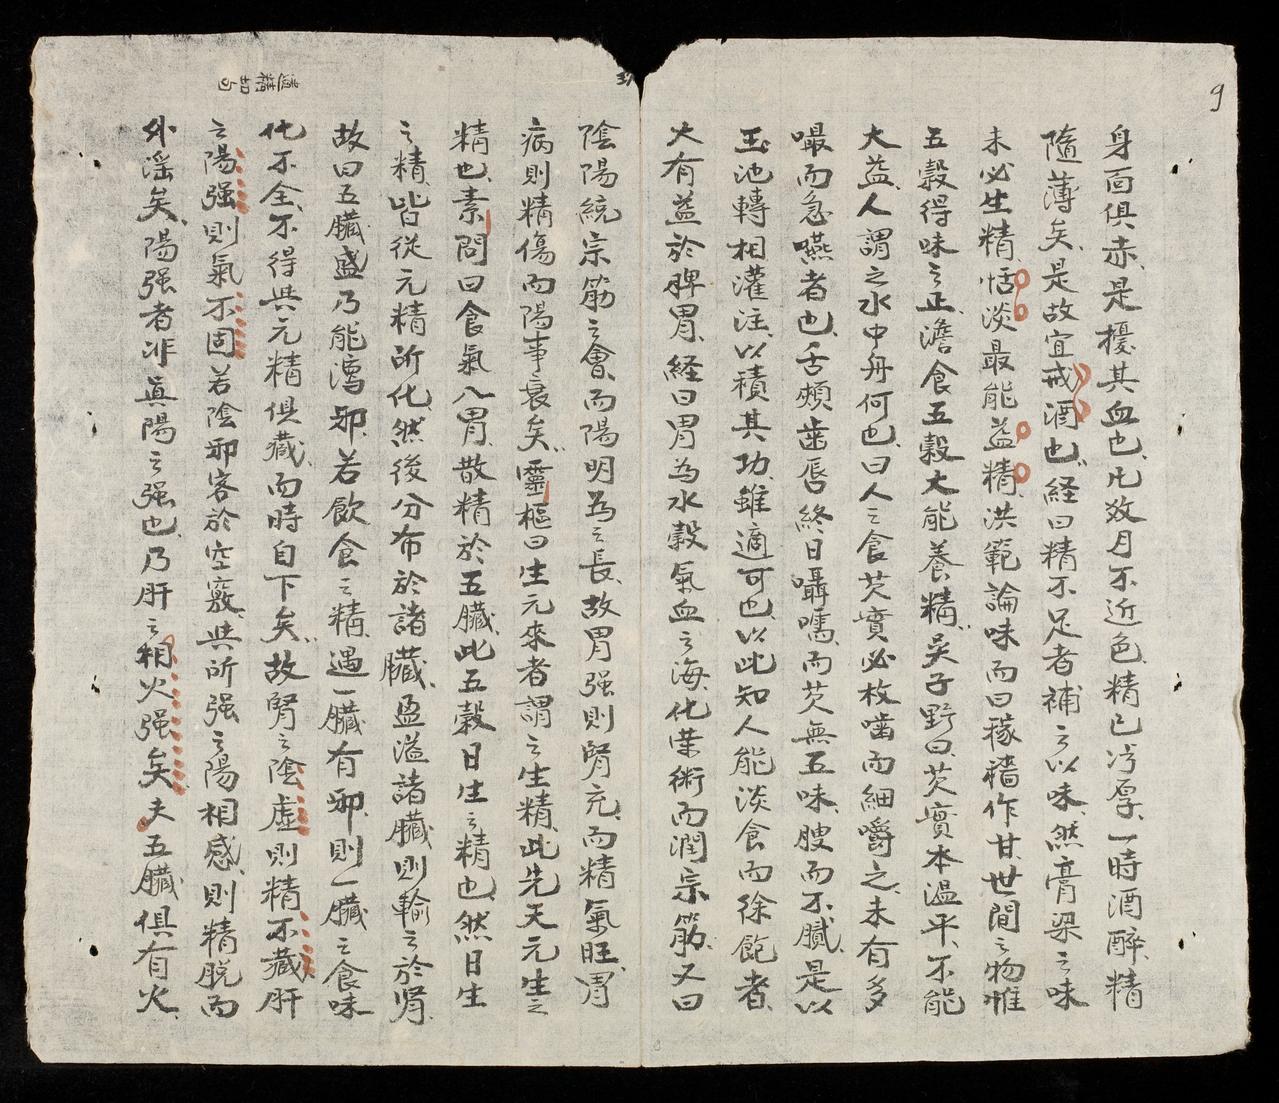 9
身面俱赤、是擾其血也、比效月不近色、精已污厚、一時酒醉、精
隨薄矣、是故宜戒酒也、経曰精不足者補之以味、然膏梁之味
未必生精、恬淡最能益精、洪範論味而曰稼穡作甘、世間之物惟
五穀得味之正、澹食五穀大能養精、吴子野曰、芡實本溫平、不能
大益、人謂之水中丹何也、曰人之食芡實必枚嚙而細嚼之、未有多
嘬而急嚥者也、舌頰齒唇終日囁嚅、而芡無五味、腴而不膩、是以
玉池轉相灌注、以積其功、雖適可也、以此知人能淡食而徐飽者、
大有益於脾胃、経曰胃為水穀氣血之海、化荣術而潤宗筋、又曰
陰陽統宗筋之會、而陽明為之長、故胃强則腎充、而精氣旺、胃
病則精傷而陽事衰矣、靈樞曰生元來者謂之生精、此先天元生之
精也、素問曰食氣入胃、散精於五臟、此五穀日生之精也、然日生
之精、皆從元精所化、然後分布於諸臟、盈溢諸臟則輸之於肾、
故曰五臟盛乃能瀉邪、若飲食之精、遇一臟有邪、則一臟之食味
化不全、不得共元精俱藏、而時自下矣、故腎之陰虛則精不藏肝
之陽强則氣不固若陰邪客於空竅、共所强之陽相感、則精脱而
外滛矣、陽强者非眞陽之强也、乃肝之相火强矣、夫五臟俱有火、